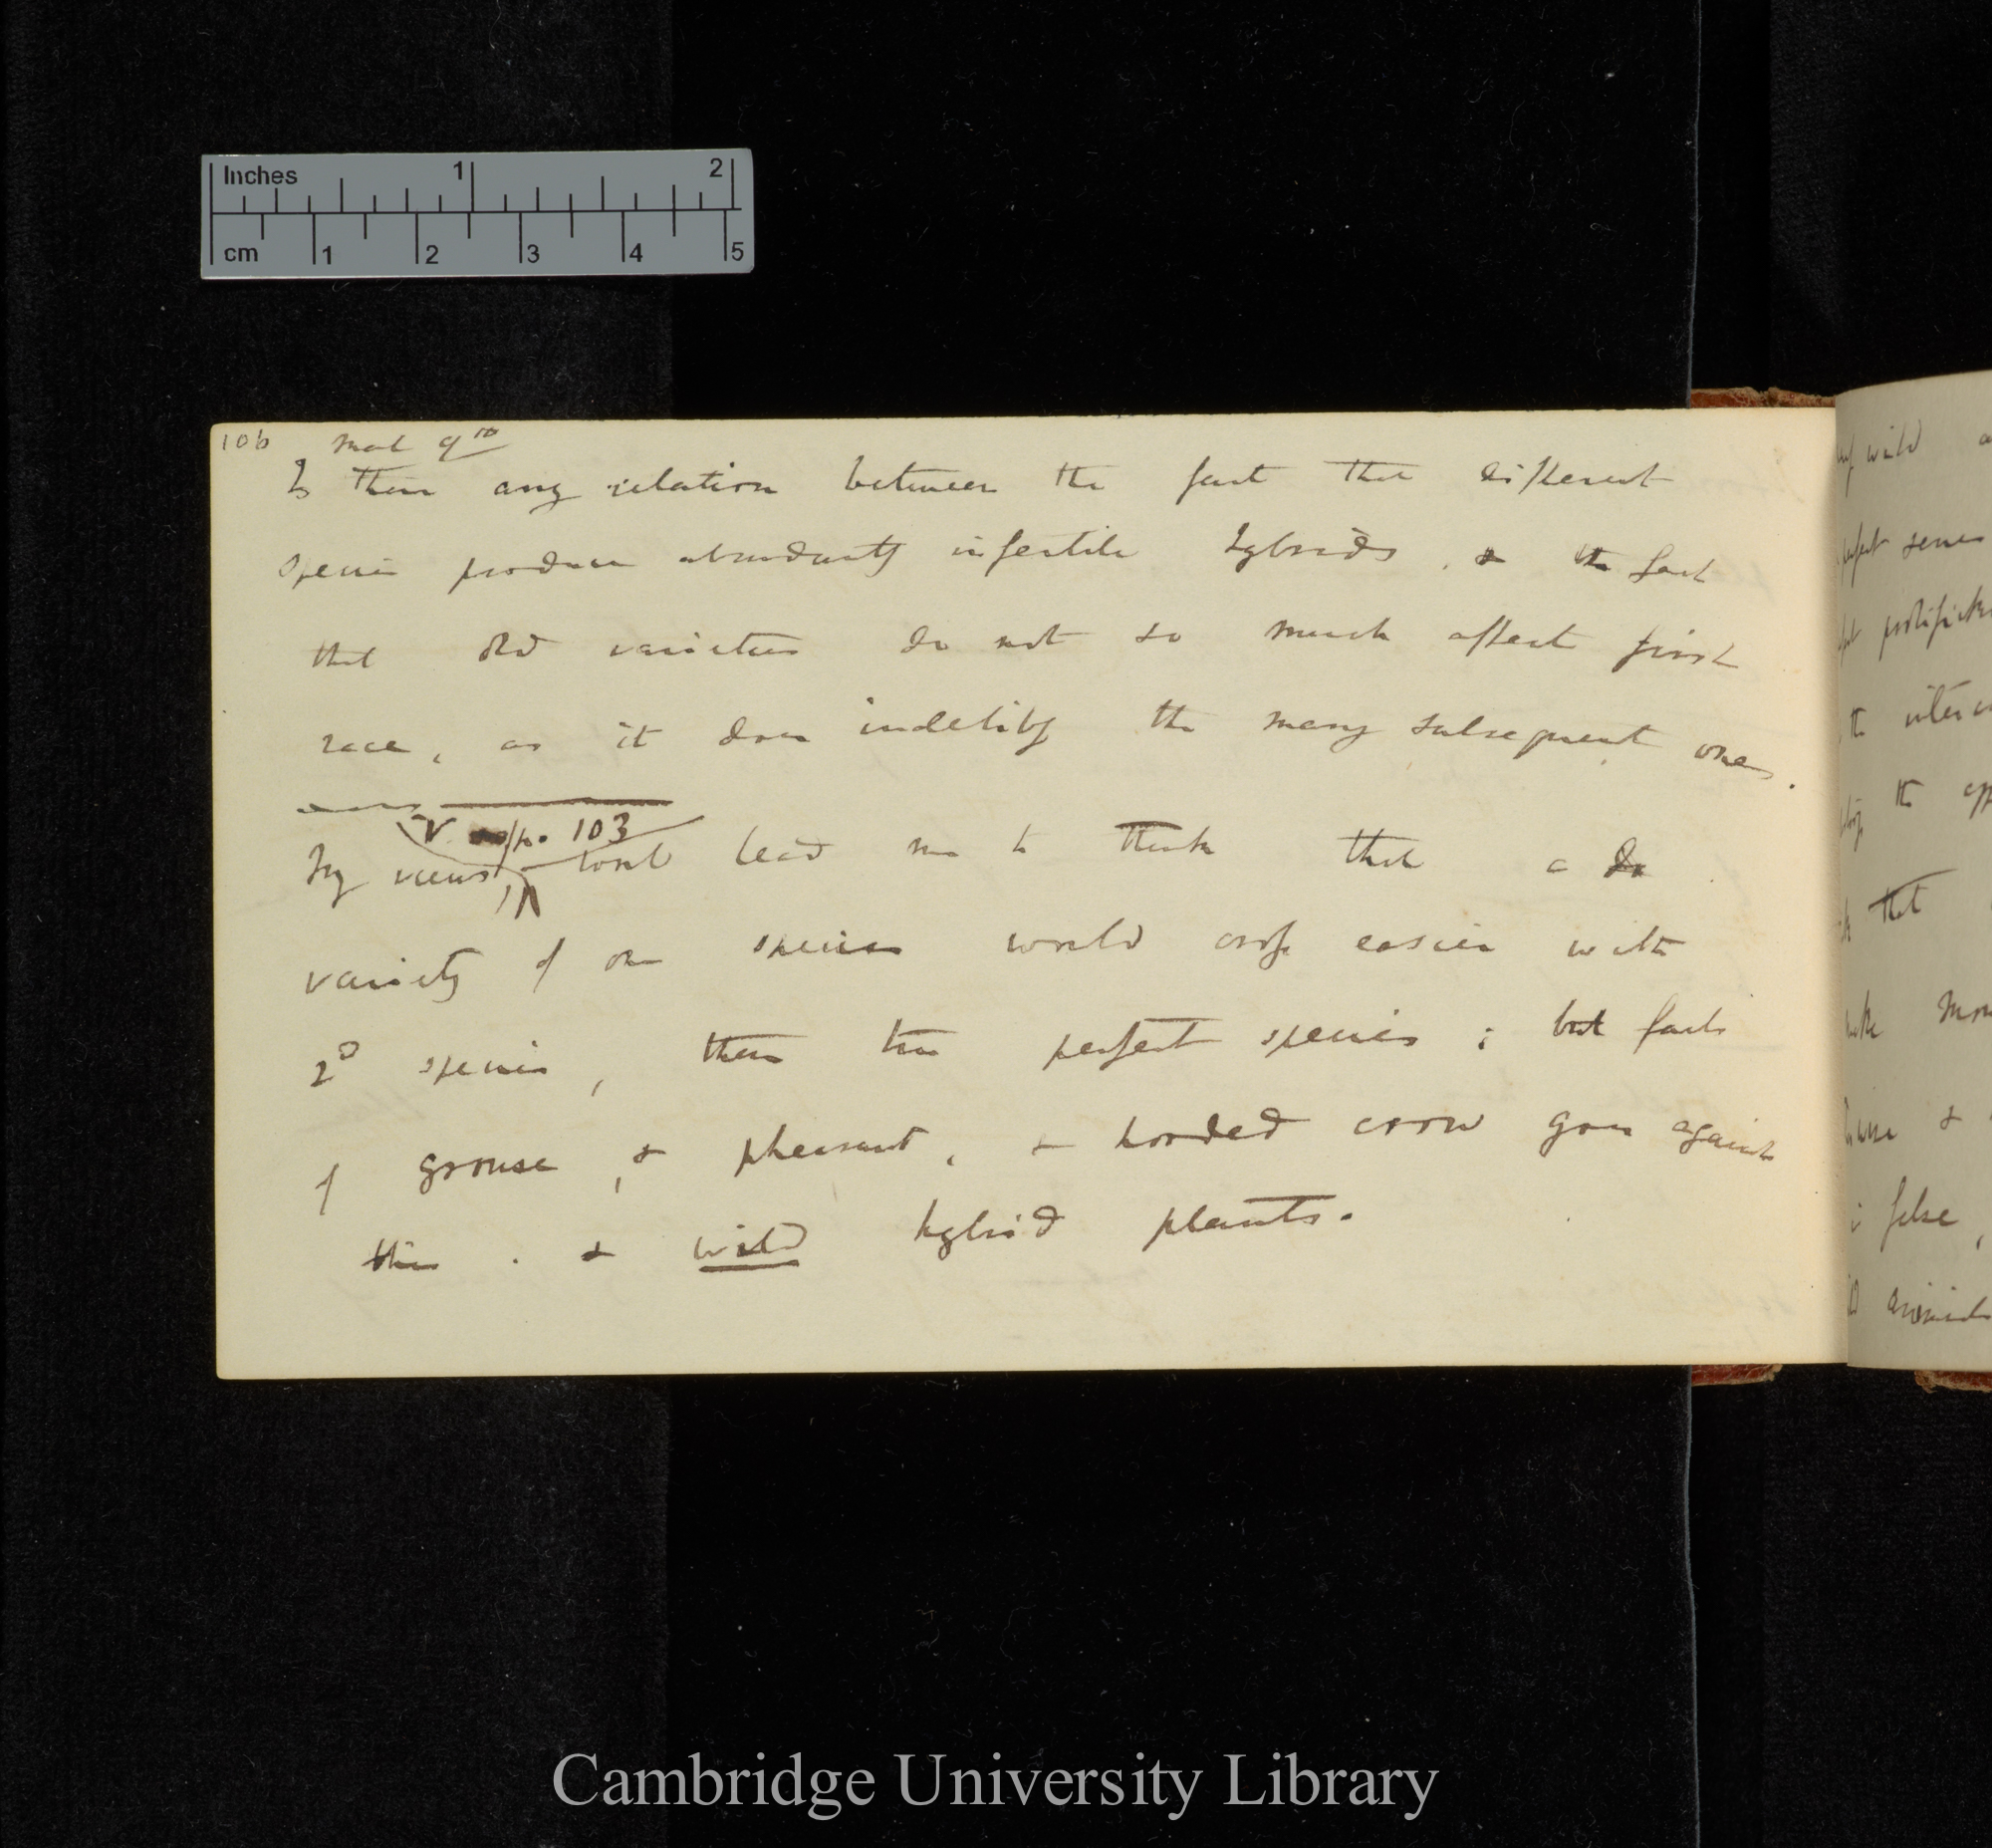 Inches 1 2
cm 1 2 3 4 5
106
Is there any relation between the fact that different
species produce abundantly infertile hybrids, & the fact
that old varieties do not so much affect first
race, as it does indelibly the many subsequent ones.
V. p. 103
My views would lead me to think that a do
variety of one species would cross easier with
2d species, than two perfect species; but facts
of grouse, & pheasant, & hooded crow goes against
this. & wild hybrid plants.
wild
series
the
the
that
&
false,
Cambridge University Library